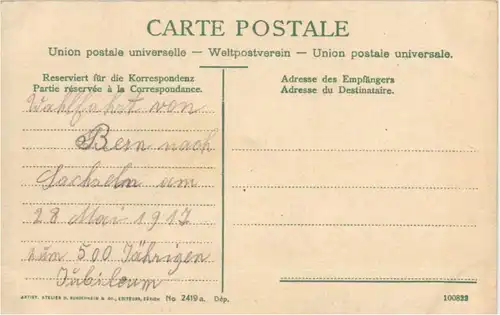 CARTE POSTALE
Union postale universelle — Weltpostverein — Union postale universale.
Reserviert für die Korrespondenz
Partie réservée à la Correspondance.
Adresse des Empfängers
Adresse du Destinataire.
Wahlfahrt von
Bern nach
Sachseln am
28 Mai 1917
zum 500 Jährigen
Jubileum
ARTIST. ATELIER H. GUGGENHEIM & Co., EDITEURS, ZÜRICH No. 2419a. Dép.
100822